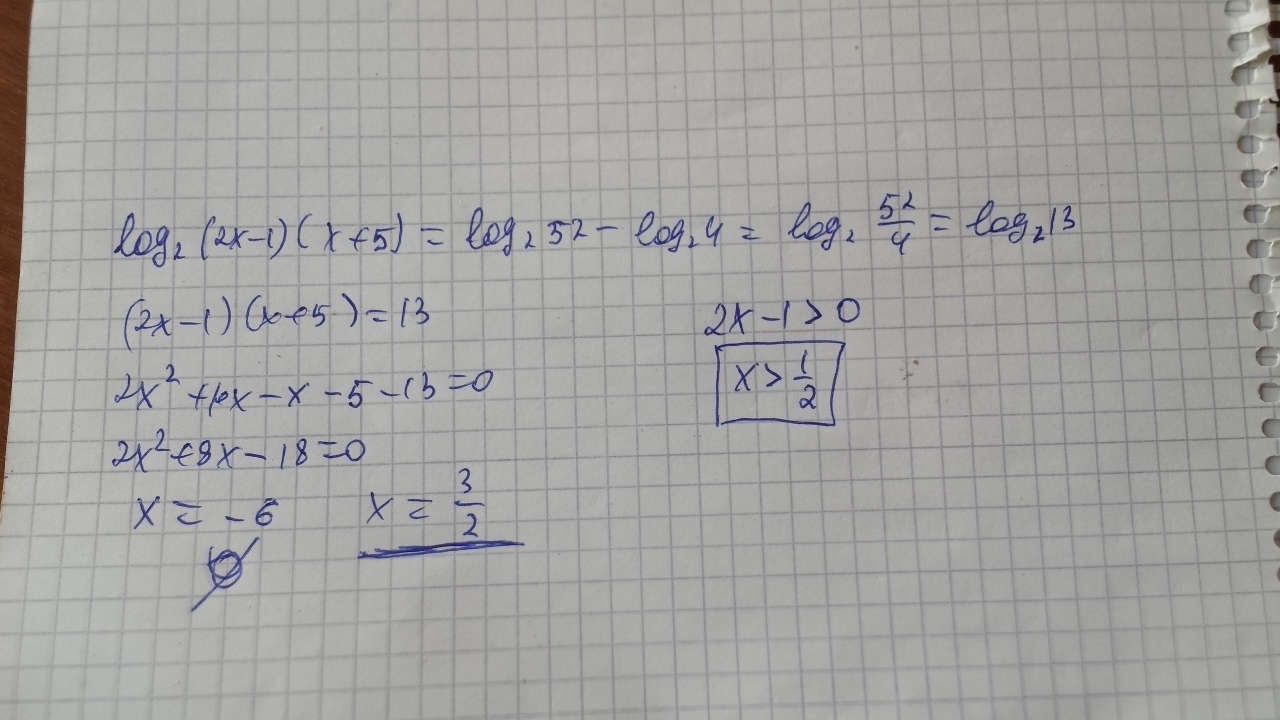 log₂(2x-1)(x+5) = log₂52 - log₂4 = log₂ 52/4 = log₂13
(2x-1)(x+5) = 13
2x-1 > 0
2x² + 10x - x - 5 - 13 = 0
x > 1/2
2x² + 9x - 18 = 0
x = -6 x = 3/2
∅